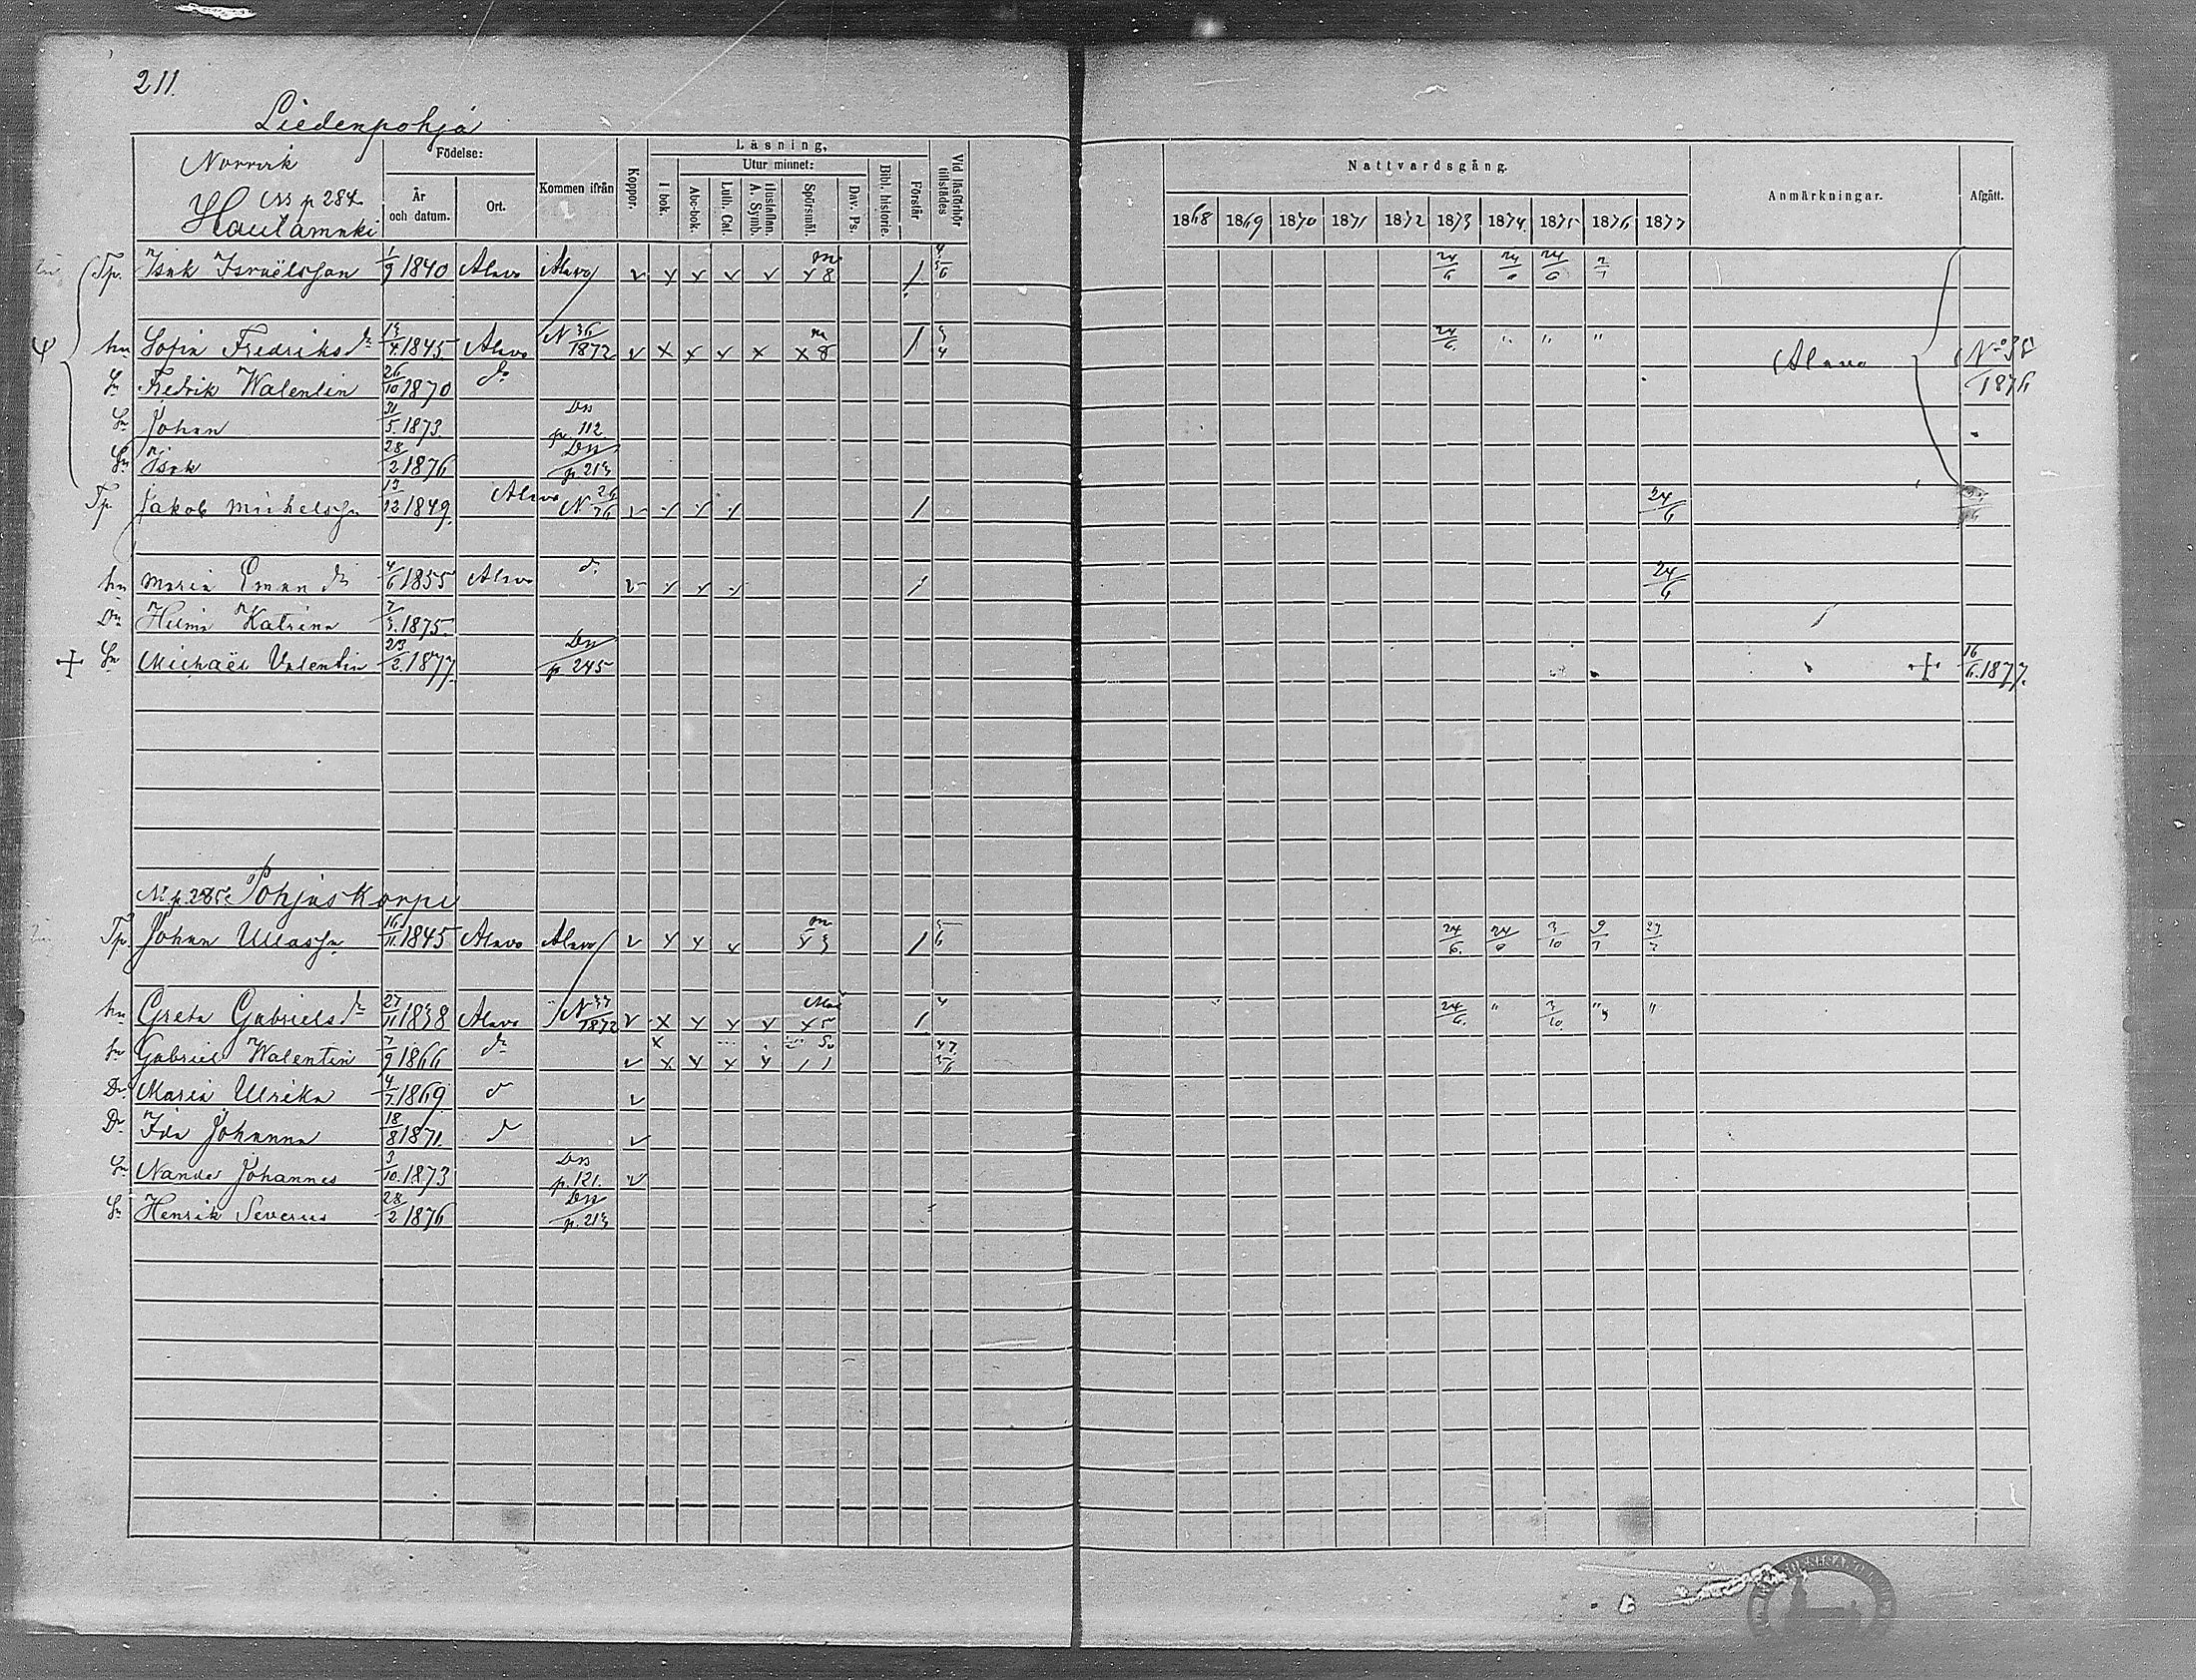 211.
Liedenpohja
Norrvik
p 284
Hautamäki
Födelse:
År och datum.
Ort.
Kommen ifrån
Koppor.
Läsning,
I bok.
Utur minnet:
Abc-bok.
Luth. Cat.
Hustaflan. A. Symb.
Spörsmål.
Dav. Ps.
Bibl. historie.
Förstår
Vid läsförhör tillstädes
Nattvardsgång.
1868 1869 1870 1871 1872 1873 1874 1875 1876 1877
Anmärkningar.
Afgått.
Tp. Isak Israëlsson 1/9 1840 Alavo Alavo v x x v v x 8 / 24/6 24/6
hu Sofia Fredriksdr 13/4 1845 Alavo N 36/1872 v x x x x x 8 / 24/6 " " " Alavo No 38/1876
Sn Fredrik Walentin 26/10 1870 do
Sn Johan 31/5 1873 Dn p. 112
Sn Isak 28/2 1876 Dn p. 213
Tp. Jakob Michelsson 13/12 1849 Alavo N 26/76 v / 24/6
hu Maria Eman dr 4/6 1855 Alavo do v / 24/6
Dr Hilma Katrina 7/3 1875
+ Sn Michaël Valentin 23/2 1877 Dn p 245 + 16/6 1877.
Ni p. 285. Pohjas Korpi
Tp. Johan Ullasson 16/11 1845 Alavo Alavo v x x x x 3 / 24/6 24/6 3/10
hu Greta Gabrielsdr 27/11 1838 Alavo N 33/1872 v x x x x x 5 / 24/6 " 3/10 " "
Sn Gabriel Walentin 7/9 1866 do v x x x x
Dr Maria Ulrika 4/7 1869 do v
Dr Ida Johanna 18/8 1871 do v
Sn Nander Johannes 3/10 1873 Dn p. 121. v
Sn Henrik Severus 28/2 1876 Dn p. 213